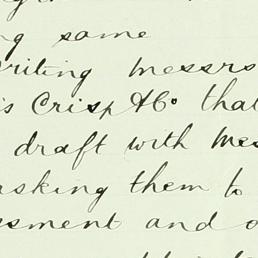 ng same
writing Messrs
is Crisp & Co that
draft with Mes
asking them to
ssment and o